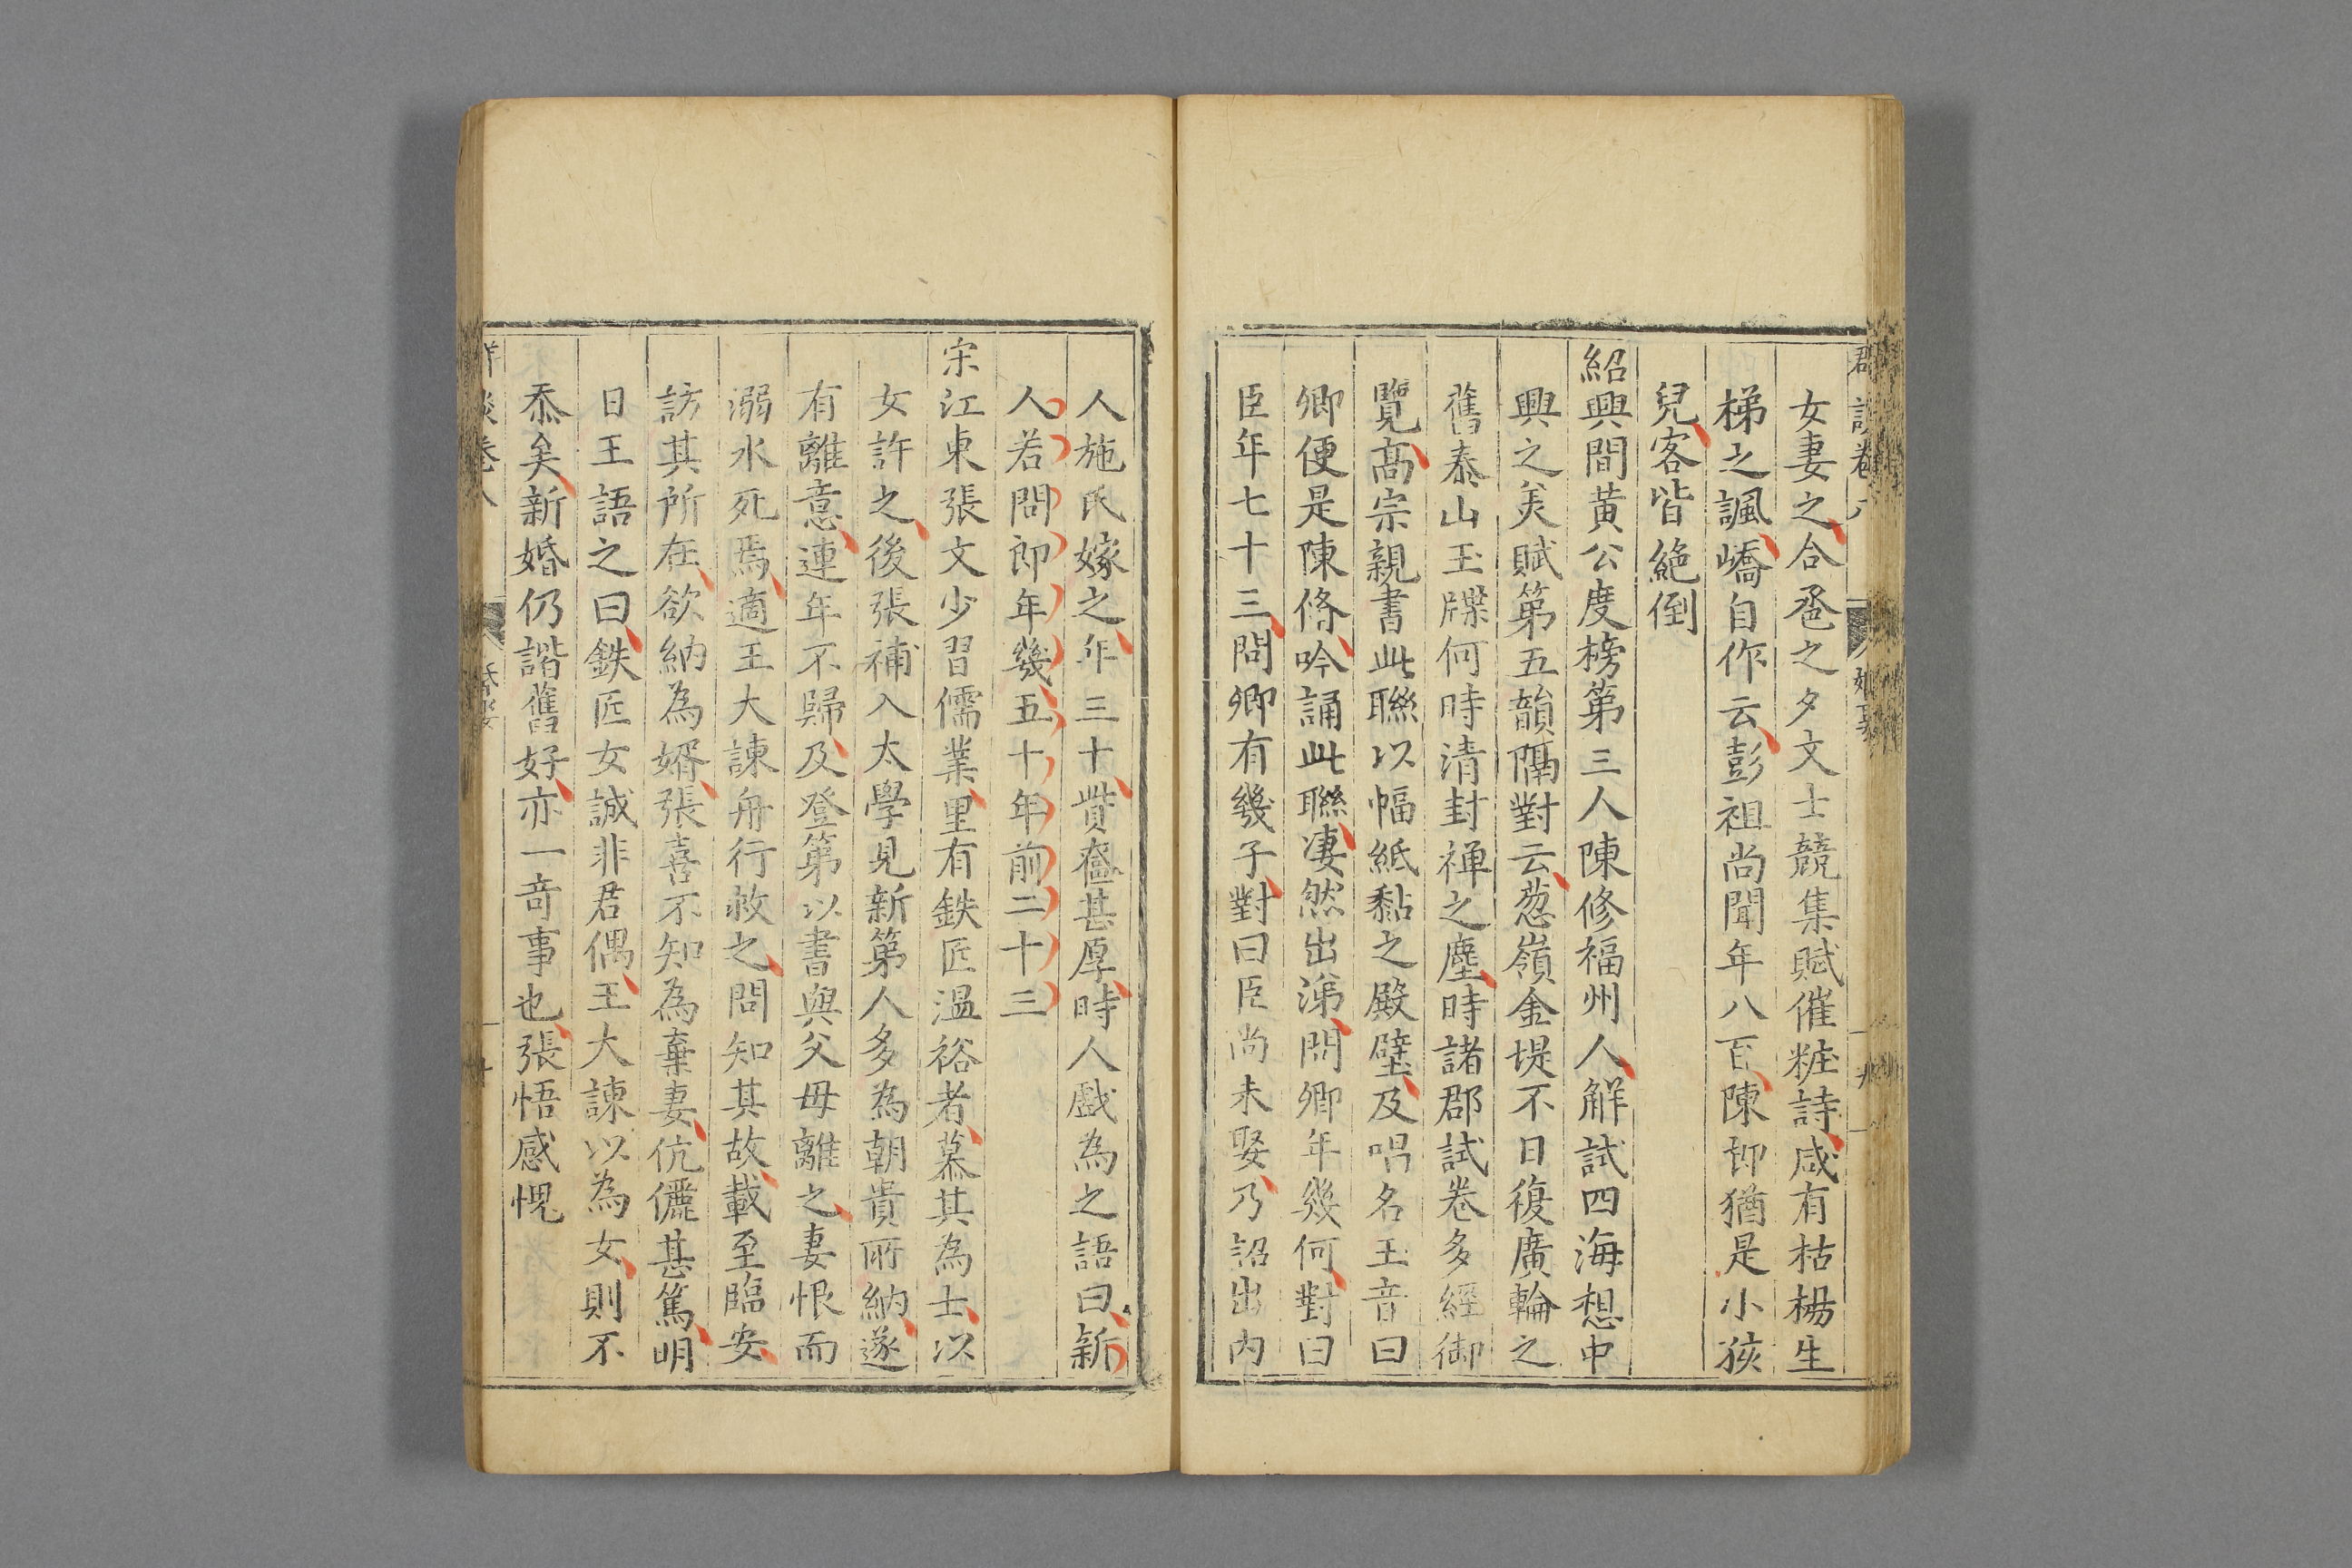 女妻之合巹之夕文士競集賦催粧詩咸有枯楊生
梯之諷嶠自作云彭祖尚聞年八百陳郎猶是小孩
兒客皆絕倒
紹興間黃公度榜第三人陳修福州人解試四海想中
興之美賦第五韻隔對云葱嶺金堤不日復廣輪之
舊泰山玉牒何時清封禅之塵時諸郡試卷多經御
覽高宗親書此聯以幅紙黏之殿壁及唱名玉音曰
卿便是陳脩吟誦此聯凄然出涕問卿年幾何對曰
臣年七十三問卿有幾子對曰臣尚未娶乃詔出內
人施氏嫁之年三十貲奩甚厚時人戲為之語曰新
人若問郎年幾五十年前二十三
宋江東張文少習儒業里有鉄匠溫裕者慕其為士以
女許之後張補入太學見新第人多為朝貴所納遂
有離意連年不歸及登第以書與父母離之妻恨而
溺水死焉適王大諫舟行救之問知其故載至臨安
訪其所在欲納為婿張喜不知為棄妻伉儷甚篤明
日王語之曰鉄匠女誠非君偶王大諫以為女則不
忝矣新婚仍諧舊好亦一奇事也張悟感愧